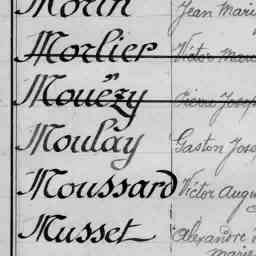 Morin Jean Mari
Morlier Victor Marc
Mouëzy Pierre Josep
Moulay Gaston Jos
Moussard Victor Augu
Musset Alexandre
Marie